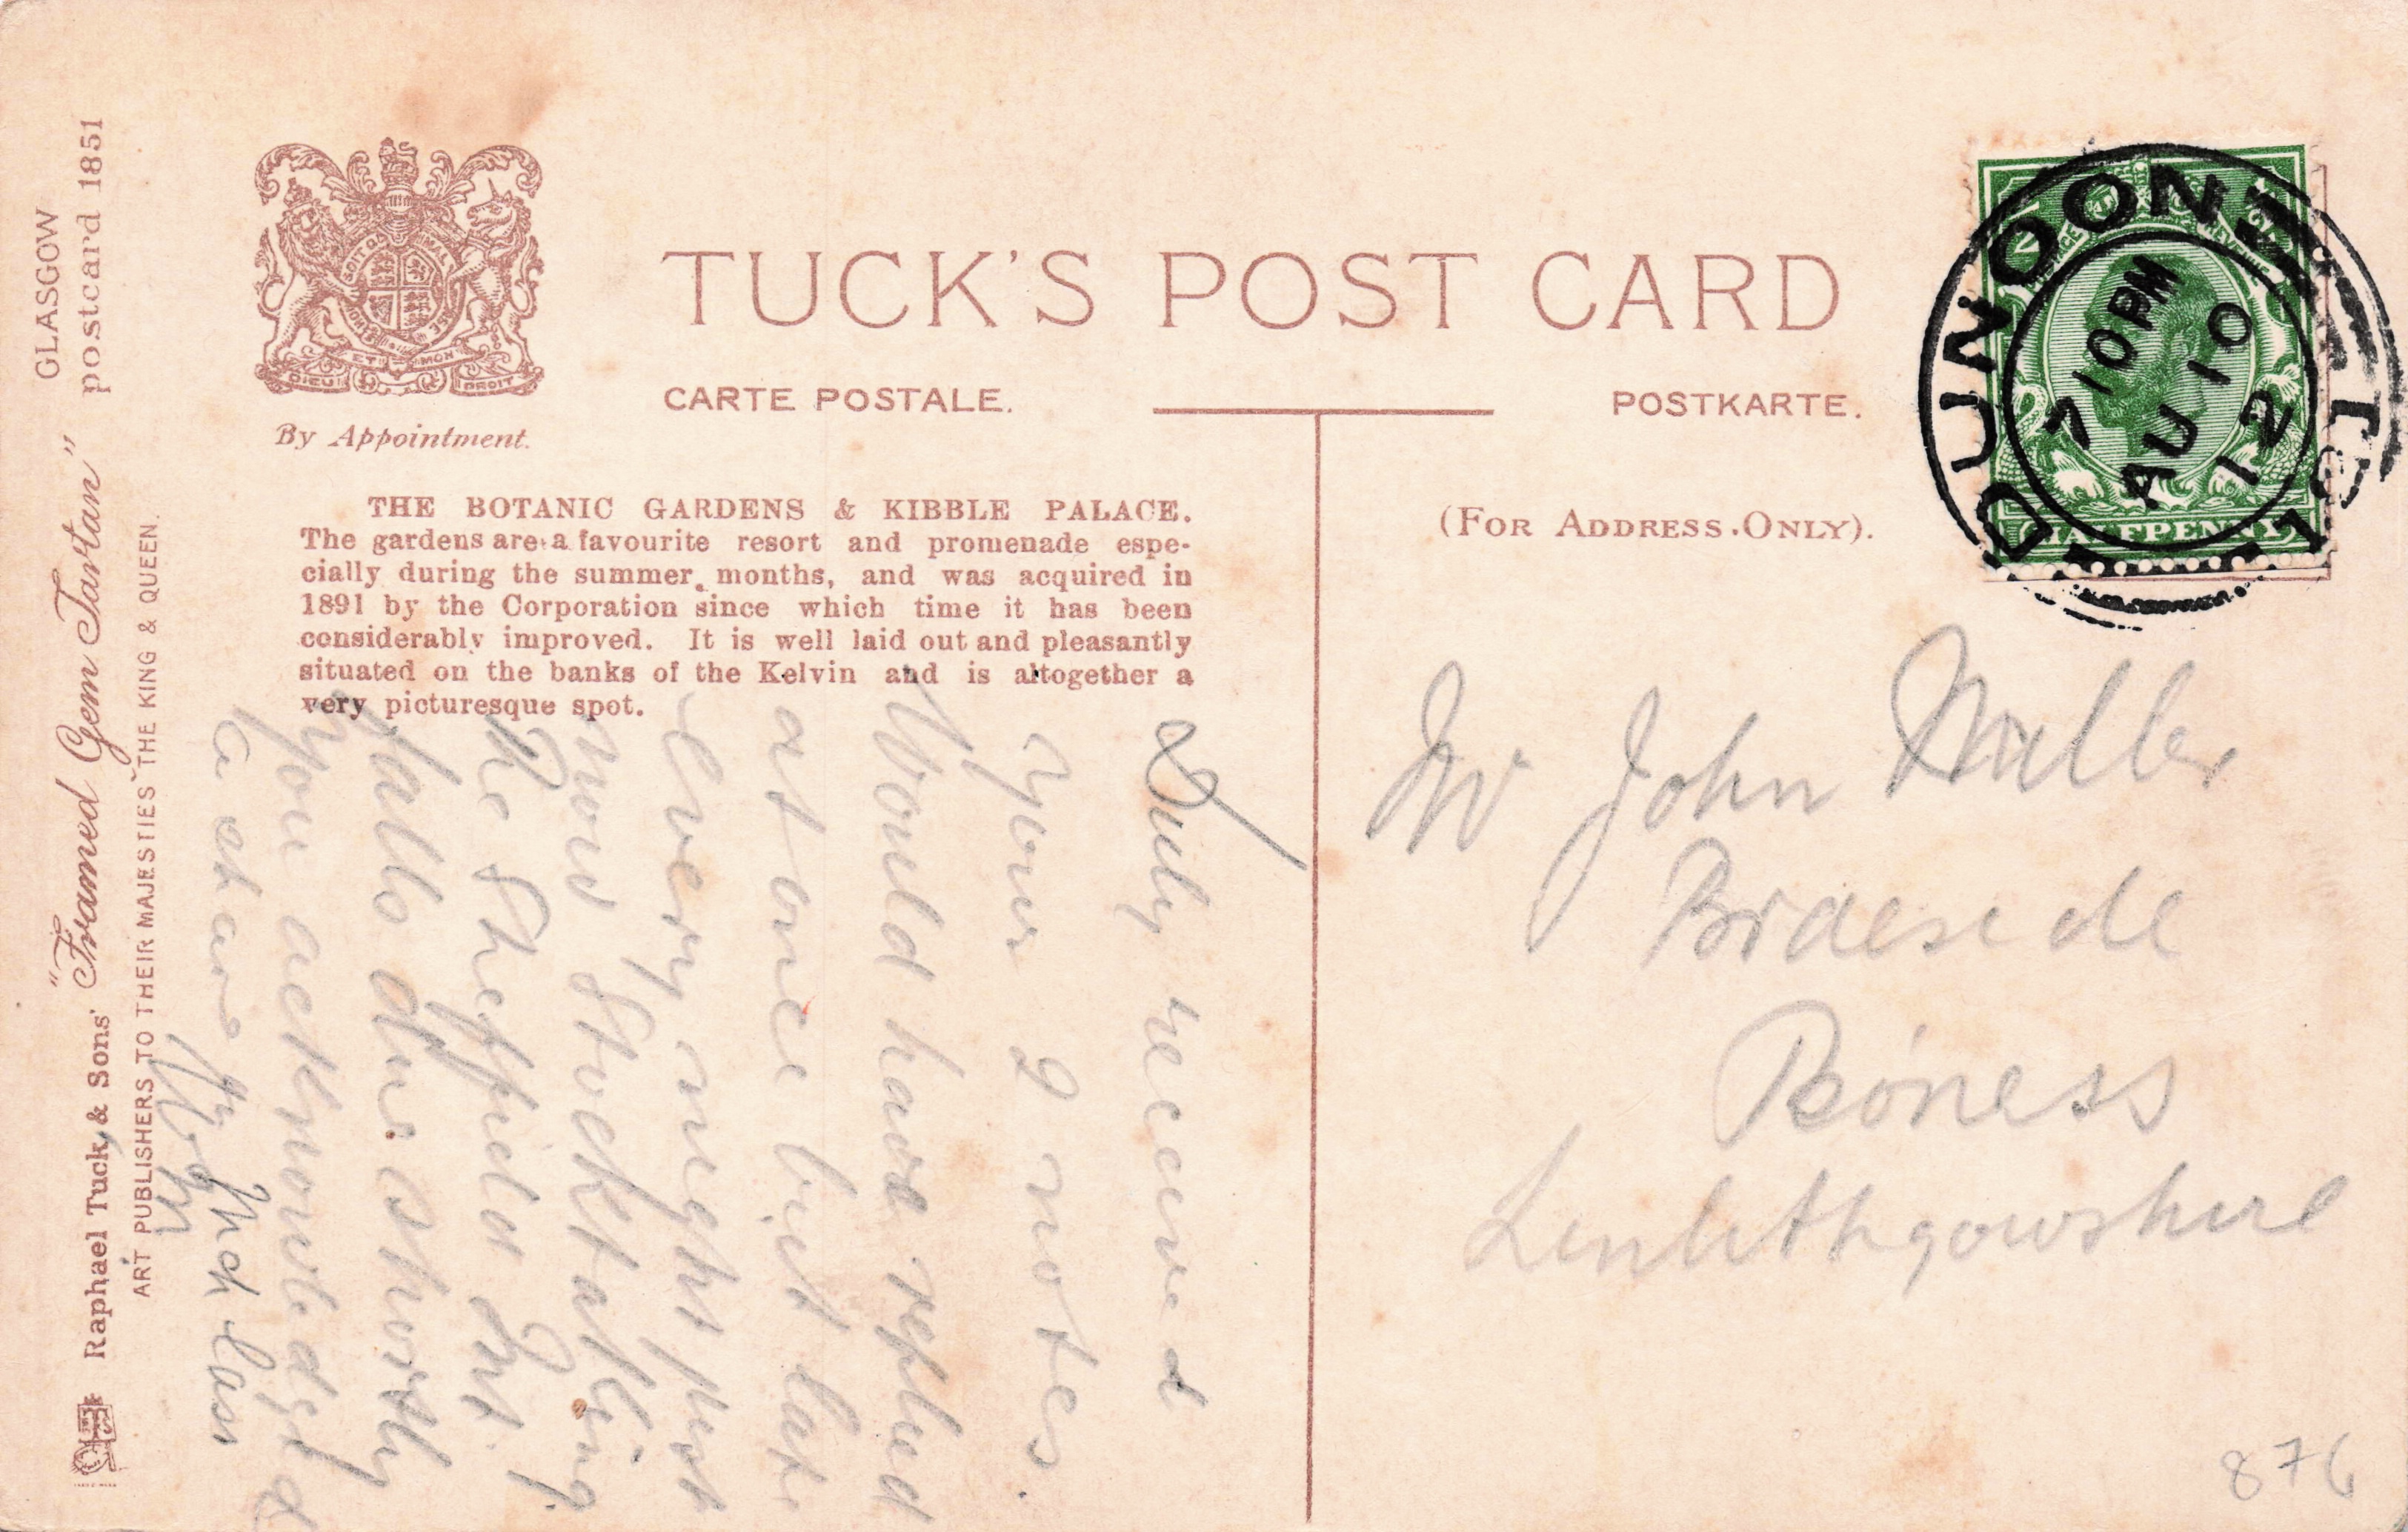 GLASGOW
postcard 1851
Raphael Tuck & Sons' "Framed Gem Tartan"
ART PUBLISHERS TO THEIR MAJESTIES THE KING & QUEEN.
SOIT QUI MAL
DIEU ET MON DROIT
By Appointment.
TUCK'S POST CARD
CARTE POSTALE.
POSTKARTE.
(FOR ADDRESS ONLY).
THE BOTANIC GARDENS & KIBBLE PALACE.
The gardens are a favourite resort and promenade espe-
cially during the summer months, and was acquired in
1891 by the Corporation since which time it has been
considerably improved. It is well laid out and pleasantly
situated on the banks of the Kelvin and is altogether a
very picturesque spot.
DUNOON
7 10 PM
AU 10
12
HALFPENNY
Duly received
your 2 notes
Would have replied
at once but late
every night just
now Stocktaking.
The Sheffield
falls due shortly
you acknowledged
Mr John Miller
Braeside
Bo'ness
Linlithgowshire
876